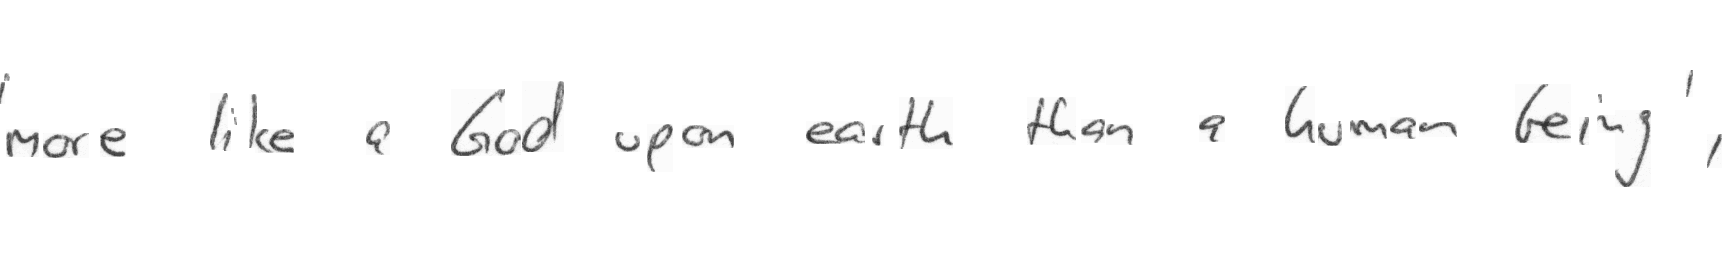 'more like a God upon earth than a human being',